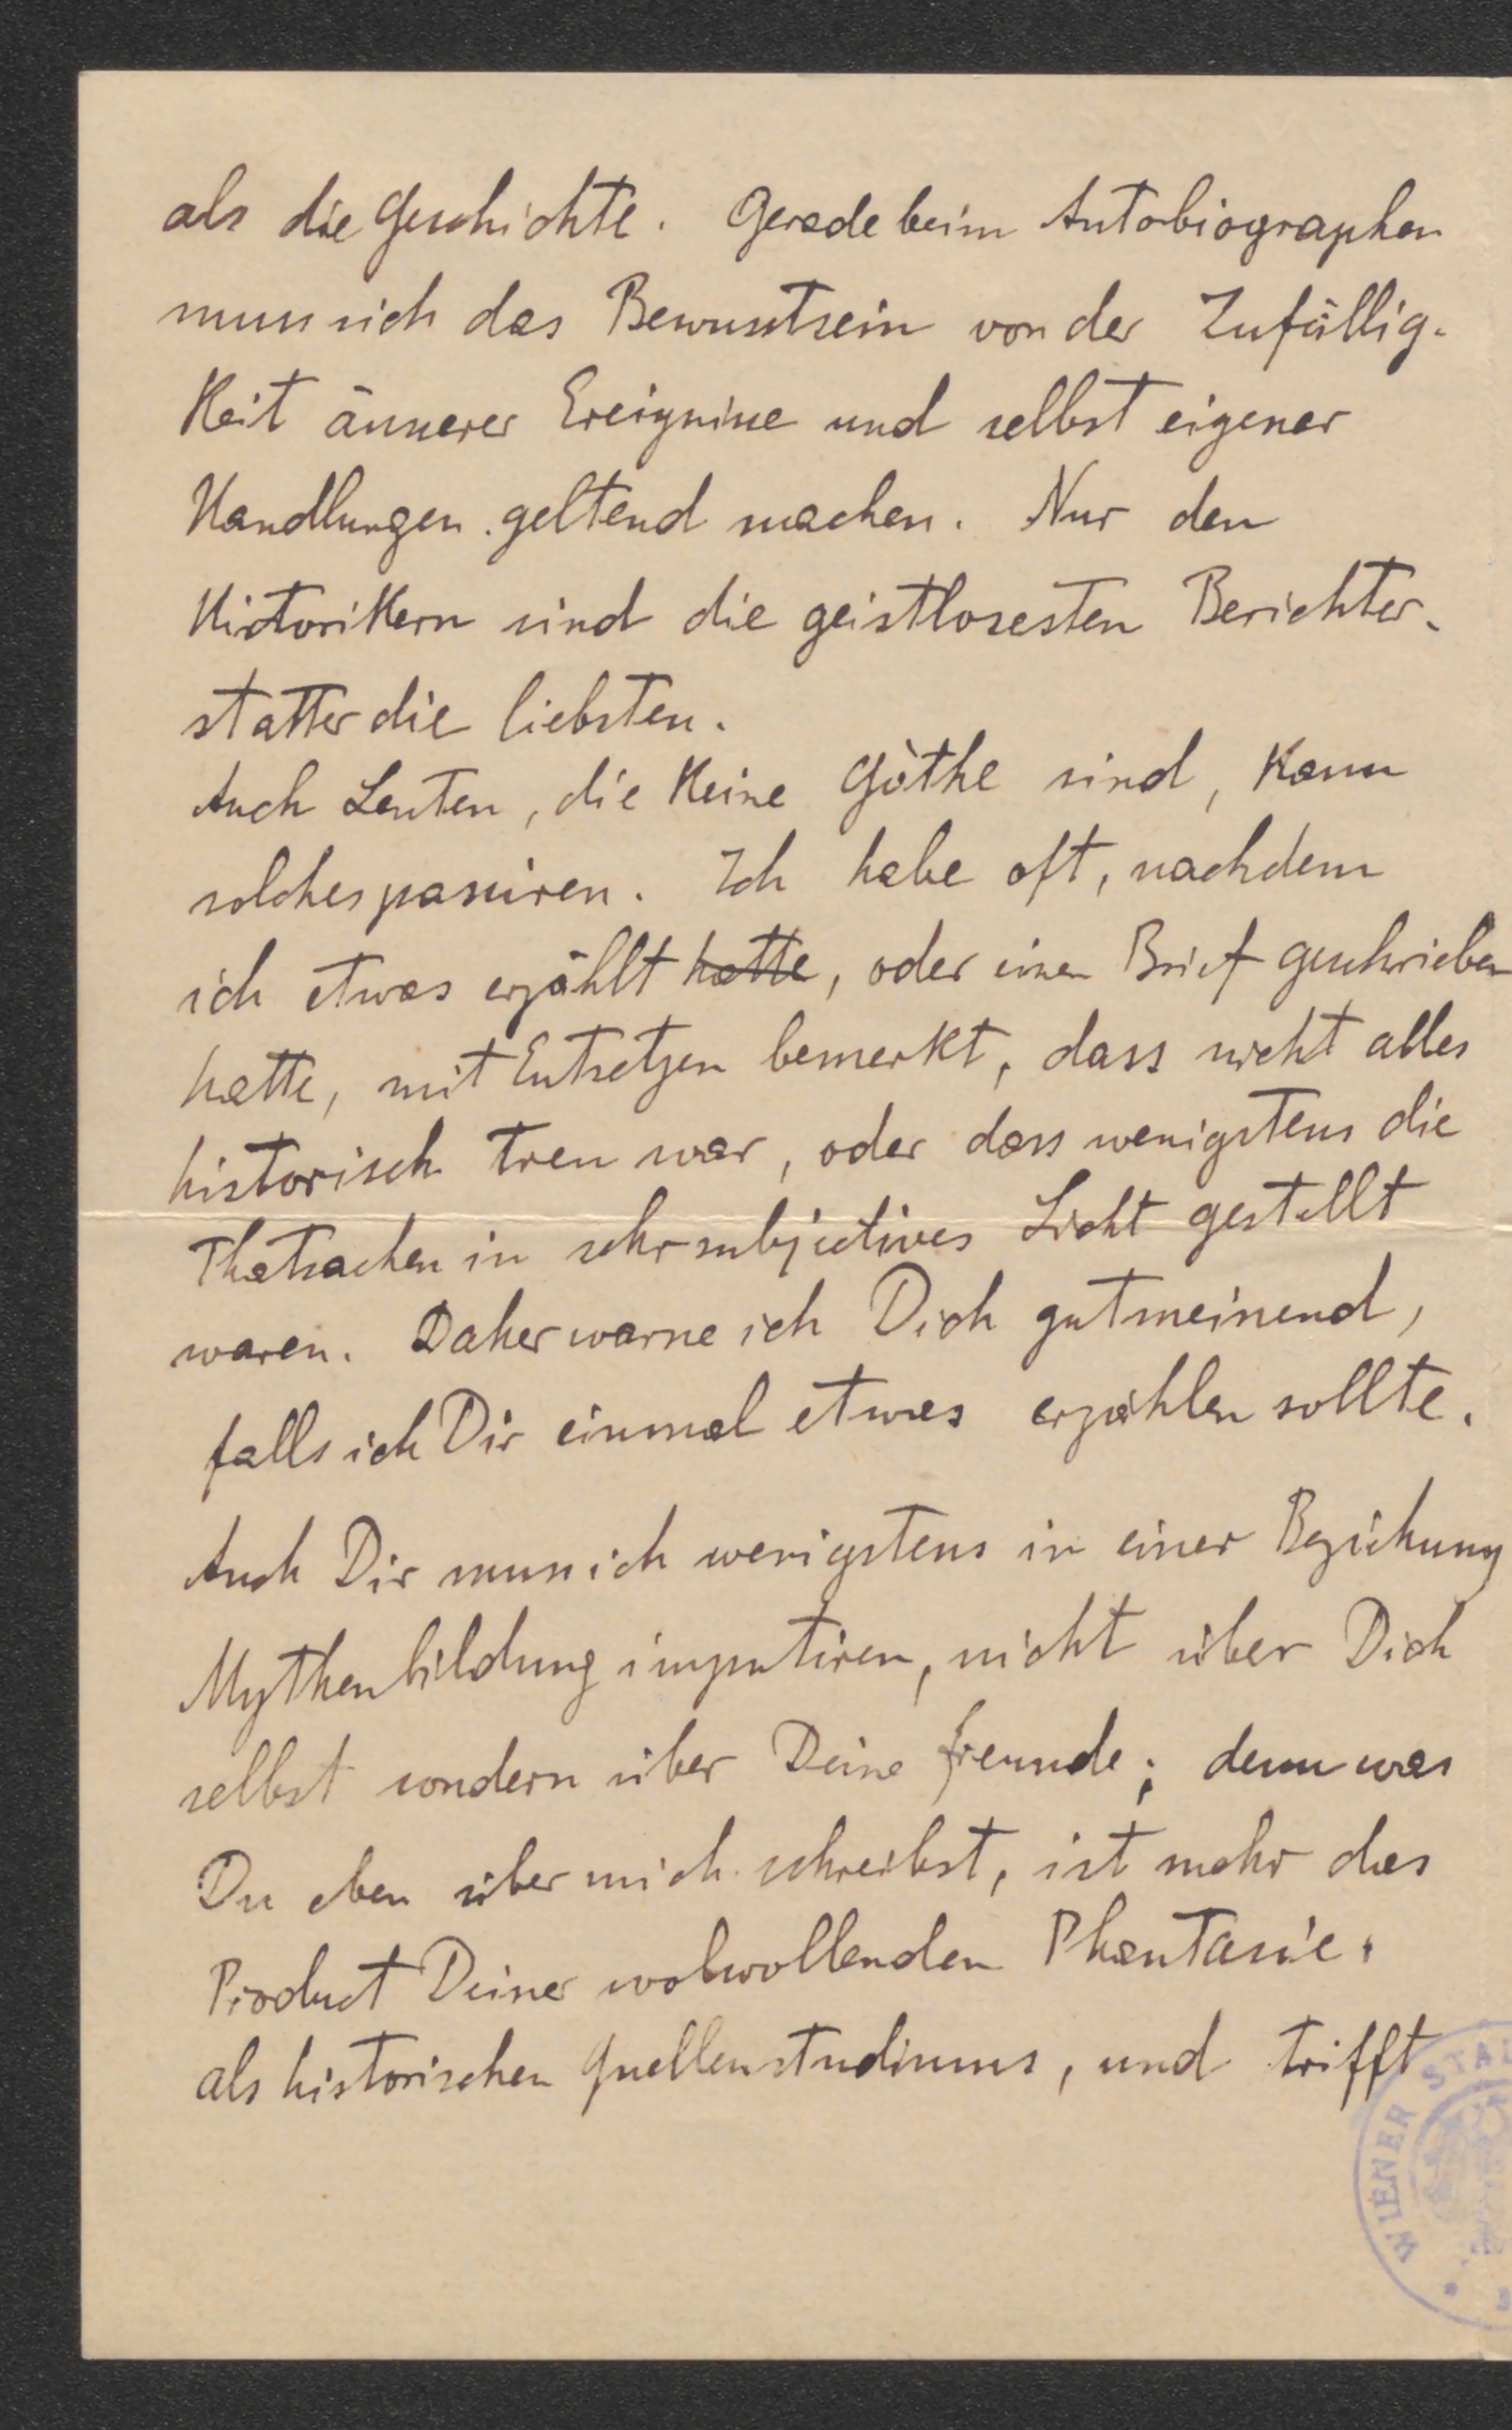 als die Geschichte. Gerade beim Autobiographen
muss sich das Bewusstsein von der Zufällig-
keit äusserer Ereignisse und selbst eigener
Handlungen geltend machen. Nur den
Historikern sind die geistlosesten Berichter-
statter die liebsten.
Auch Leuten, die keine Göthe sind, kann
solches passiren. Ich habe oft, nachdem
ich etwas erzählt hatte, oder einen Brief geschrieben
hatte, mit Entsetzen bemerkt, dass nicht alles
historisch treu war, oder dass wenigstens die
Thatsachen in sehr subjectives Licht gestellt
waren. Daher warne ich Dich gutmeinend,
falls ich Dir einmal etwas erzählen sollte.
Auch Dir muss ich wenigstens in einer Beziehung
Mythenbildung imputiren, nicht über Dich
selbst sondern über Deine Freunde; denn was
Du eben über mich schreibst, ist mehr das
Product Deiner wolwollenden Phantasie,
als historischen Quellenstudiums, und trifft
WIENER STA